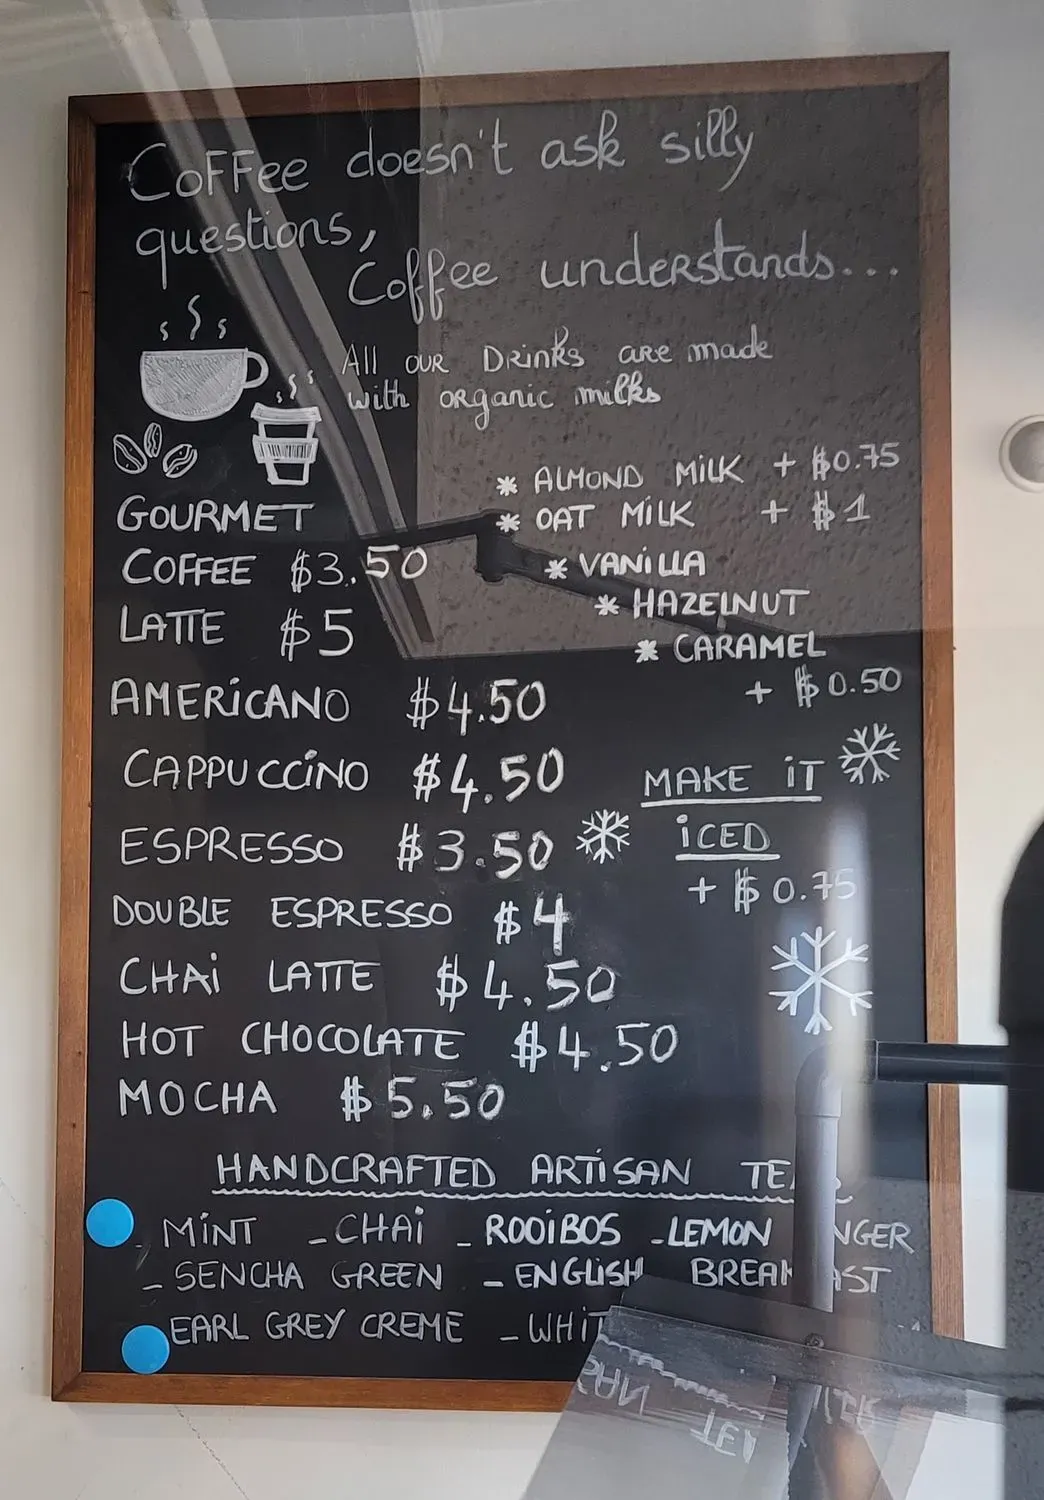 Coffee doesn't ask silly
questions,
Coffee understands...
All our Drinks are made
with organic milks
* ALMOND MiLK + $0.75
* OAT MiLK + $1
* VANiLLA
* HAZELNUT
* CARAMEL
+ $0.50
GOURMET
COFFEE $3.50
LATTE $5
AMERiCANO $4.50
CAPPUCCiNO $4.50
ESPRESSO $3.50
DOUBLE ESPRESSO $4
CHAi LATTE $4.50
HOT CHOCOLATE $4.50
MOCHA $5.50
MAKE iT
iCED
+ $0.75
HANDCRAFTED ARTiSAN
- MiNT - CHAi - ROOiBOS - LEMON
- SENCHA GREEN - ENGLiSH BREAKFAST
EARL GREY CREME